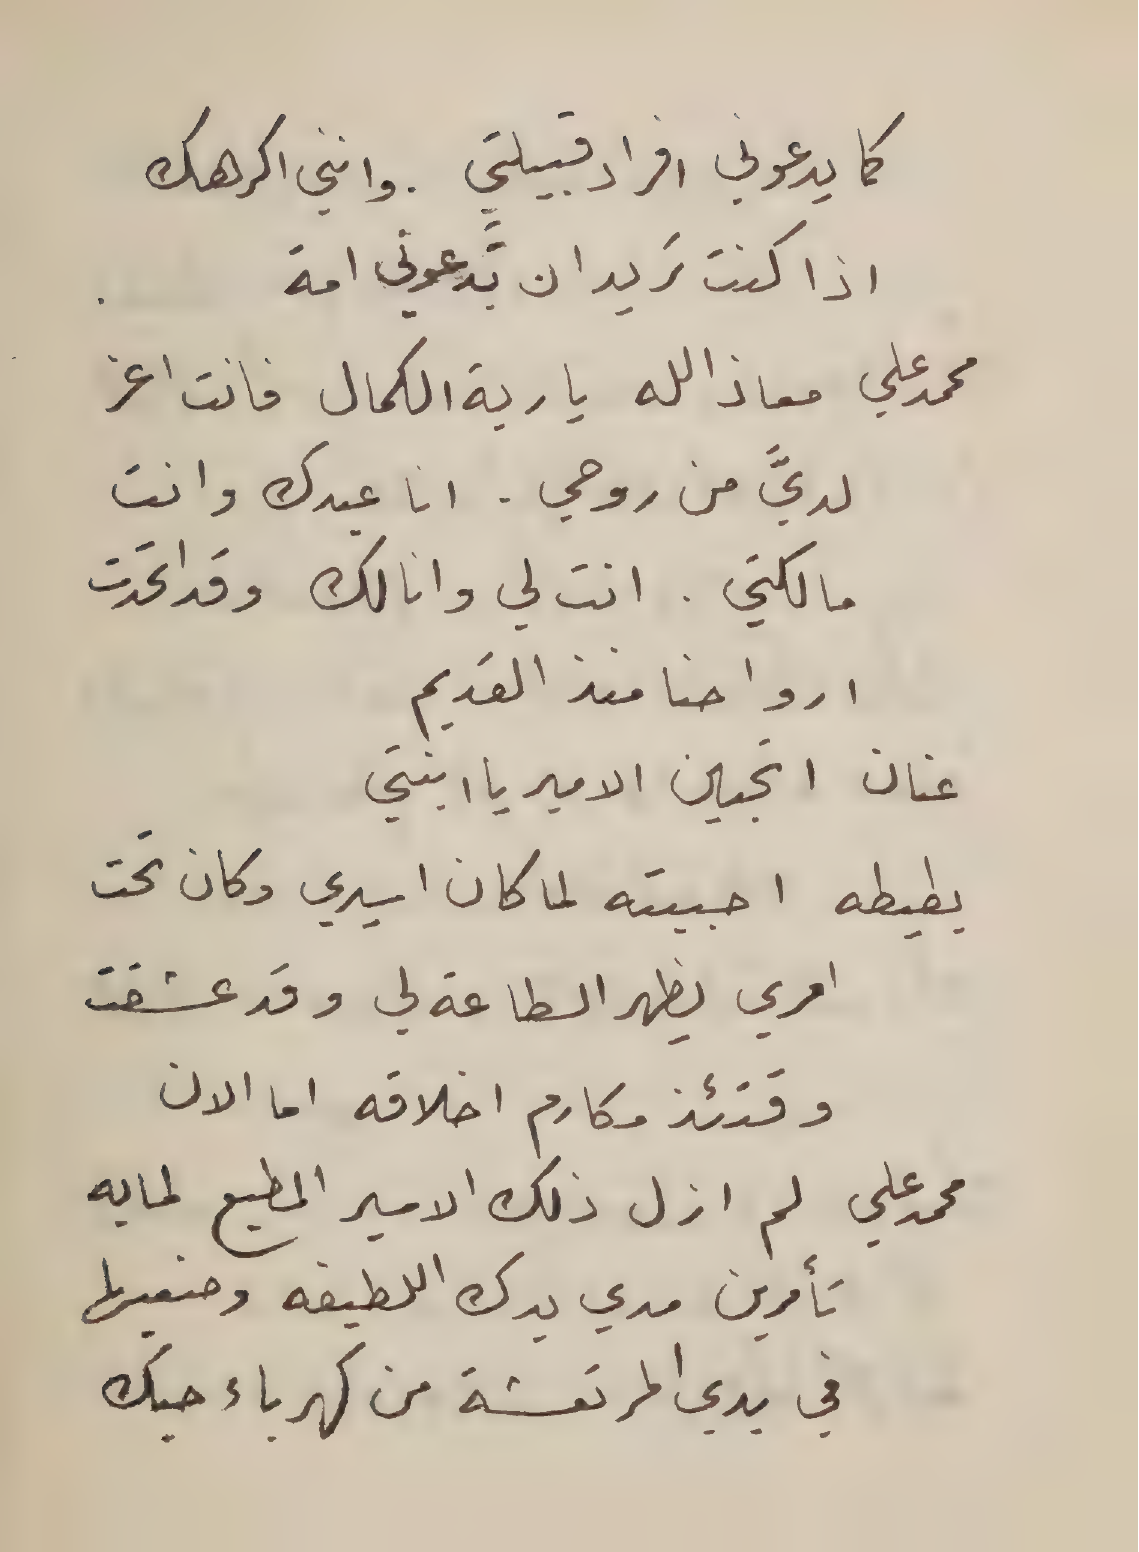 كما يدعوني افراد قبيلتي . وانني اكرهك
اذا كنت تريد ان تدعوني امة .
محمد علي معاذ الله يا ربة الكمال فانت اعز
لديَّ من روحي . انا عبدك وانت
مالكتي . انت لي وانا لك وقد اتحدت
ارواحنا منذ القديم
عنان اتحبين الامير يا ابنتي
بطيطه احببته لما كان اسيري وكان تحت
امري يظهر الطاعة لي وقد عشقت
وقتئذ مكارم اخلاقه اما الان
محمد علي لم ازل ذلك الامير المطيع لما به
تأمرين مدي يدك اللطيفه وضعيها
في يدي المرتعشة من كهرباء حبك